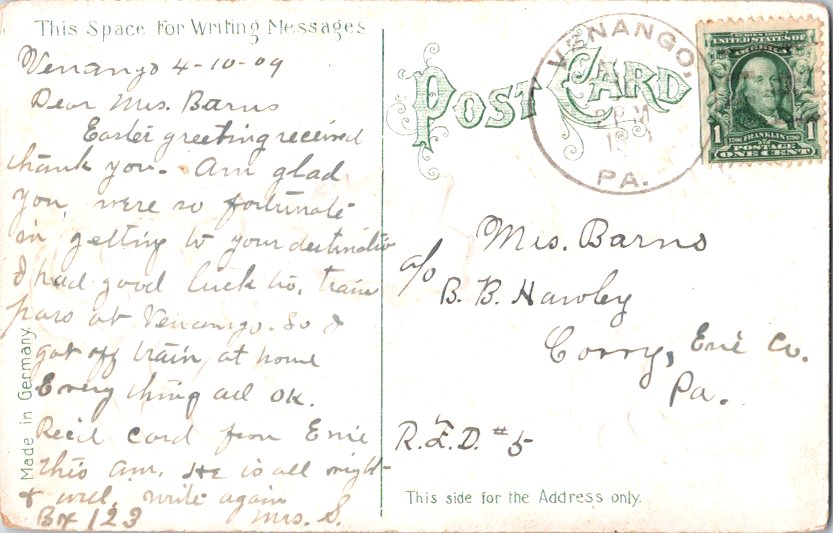 This Space For Writing Messages
Venango 4-10-09
Dear Mrs. Barns
Easter greeting received
thank you. Am glad
you were so fortunate
in getting to your destination
I had good luck to, train
pass at Venango. So I
got off train at home
Every thing all OK.
Rec'd card from Ernie
this am. He is all right
& well. write again
Bx 123 Mrs. S.
Made in Germany.
POST CARD
VENANGO,
PM
PA.
SERIES 1902
UNITED STATES OF
AMERICA
1 1706 FRANKLIN 1790 1
POSTAGE
ONE CENT
Mrs. Barns
c/o
B. B. Hawley
Corry, Erie Co.
Pa.
R.F.D. #5
This side for the Address only.